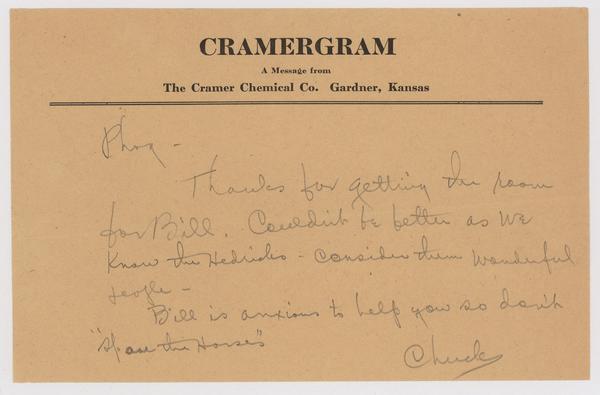 CRAMERGRAM
A Message from
The Cramer Chemical Co. Gardner, Kansas
Phog -
Thanks for getting the room
for Bill. Couldn't be better as we
know the Hedricks - consider them wonderful
people -
Bill is anxious to help you so don't
"spare the Horses"
Chuck